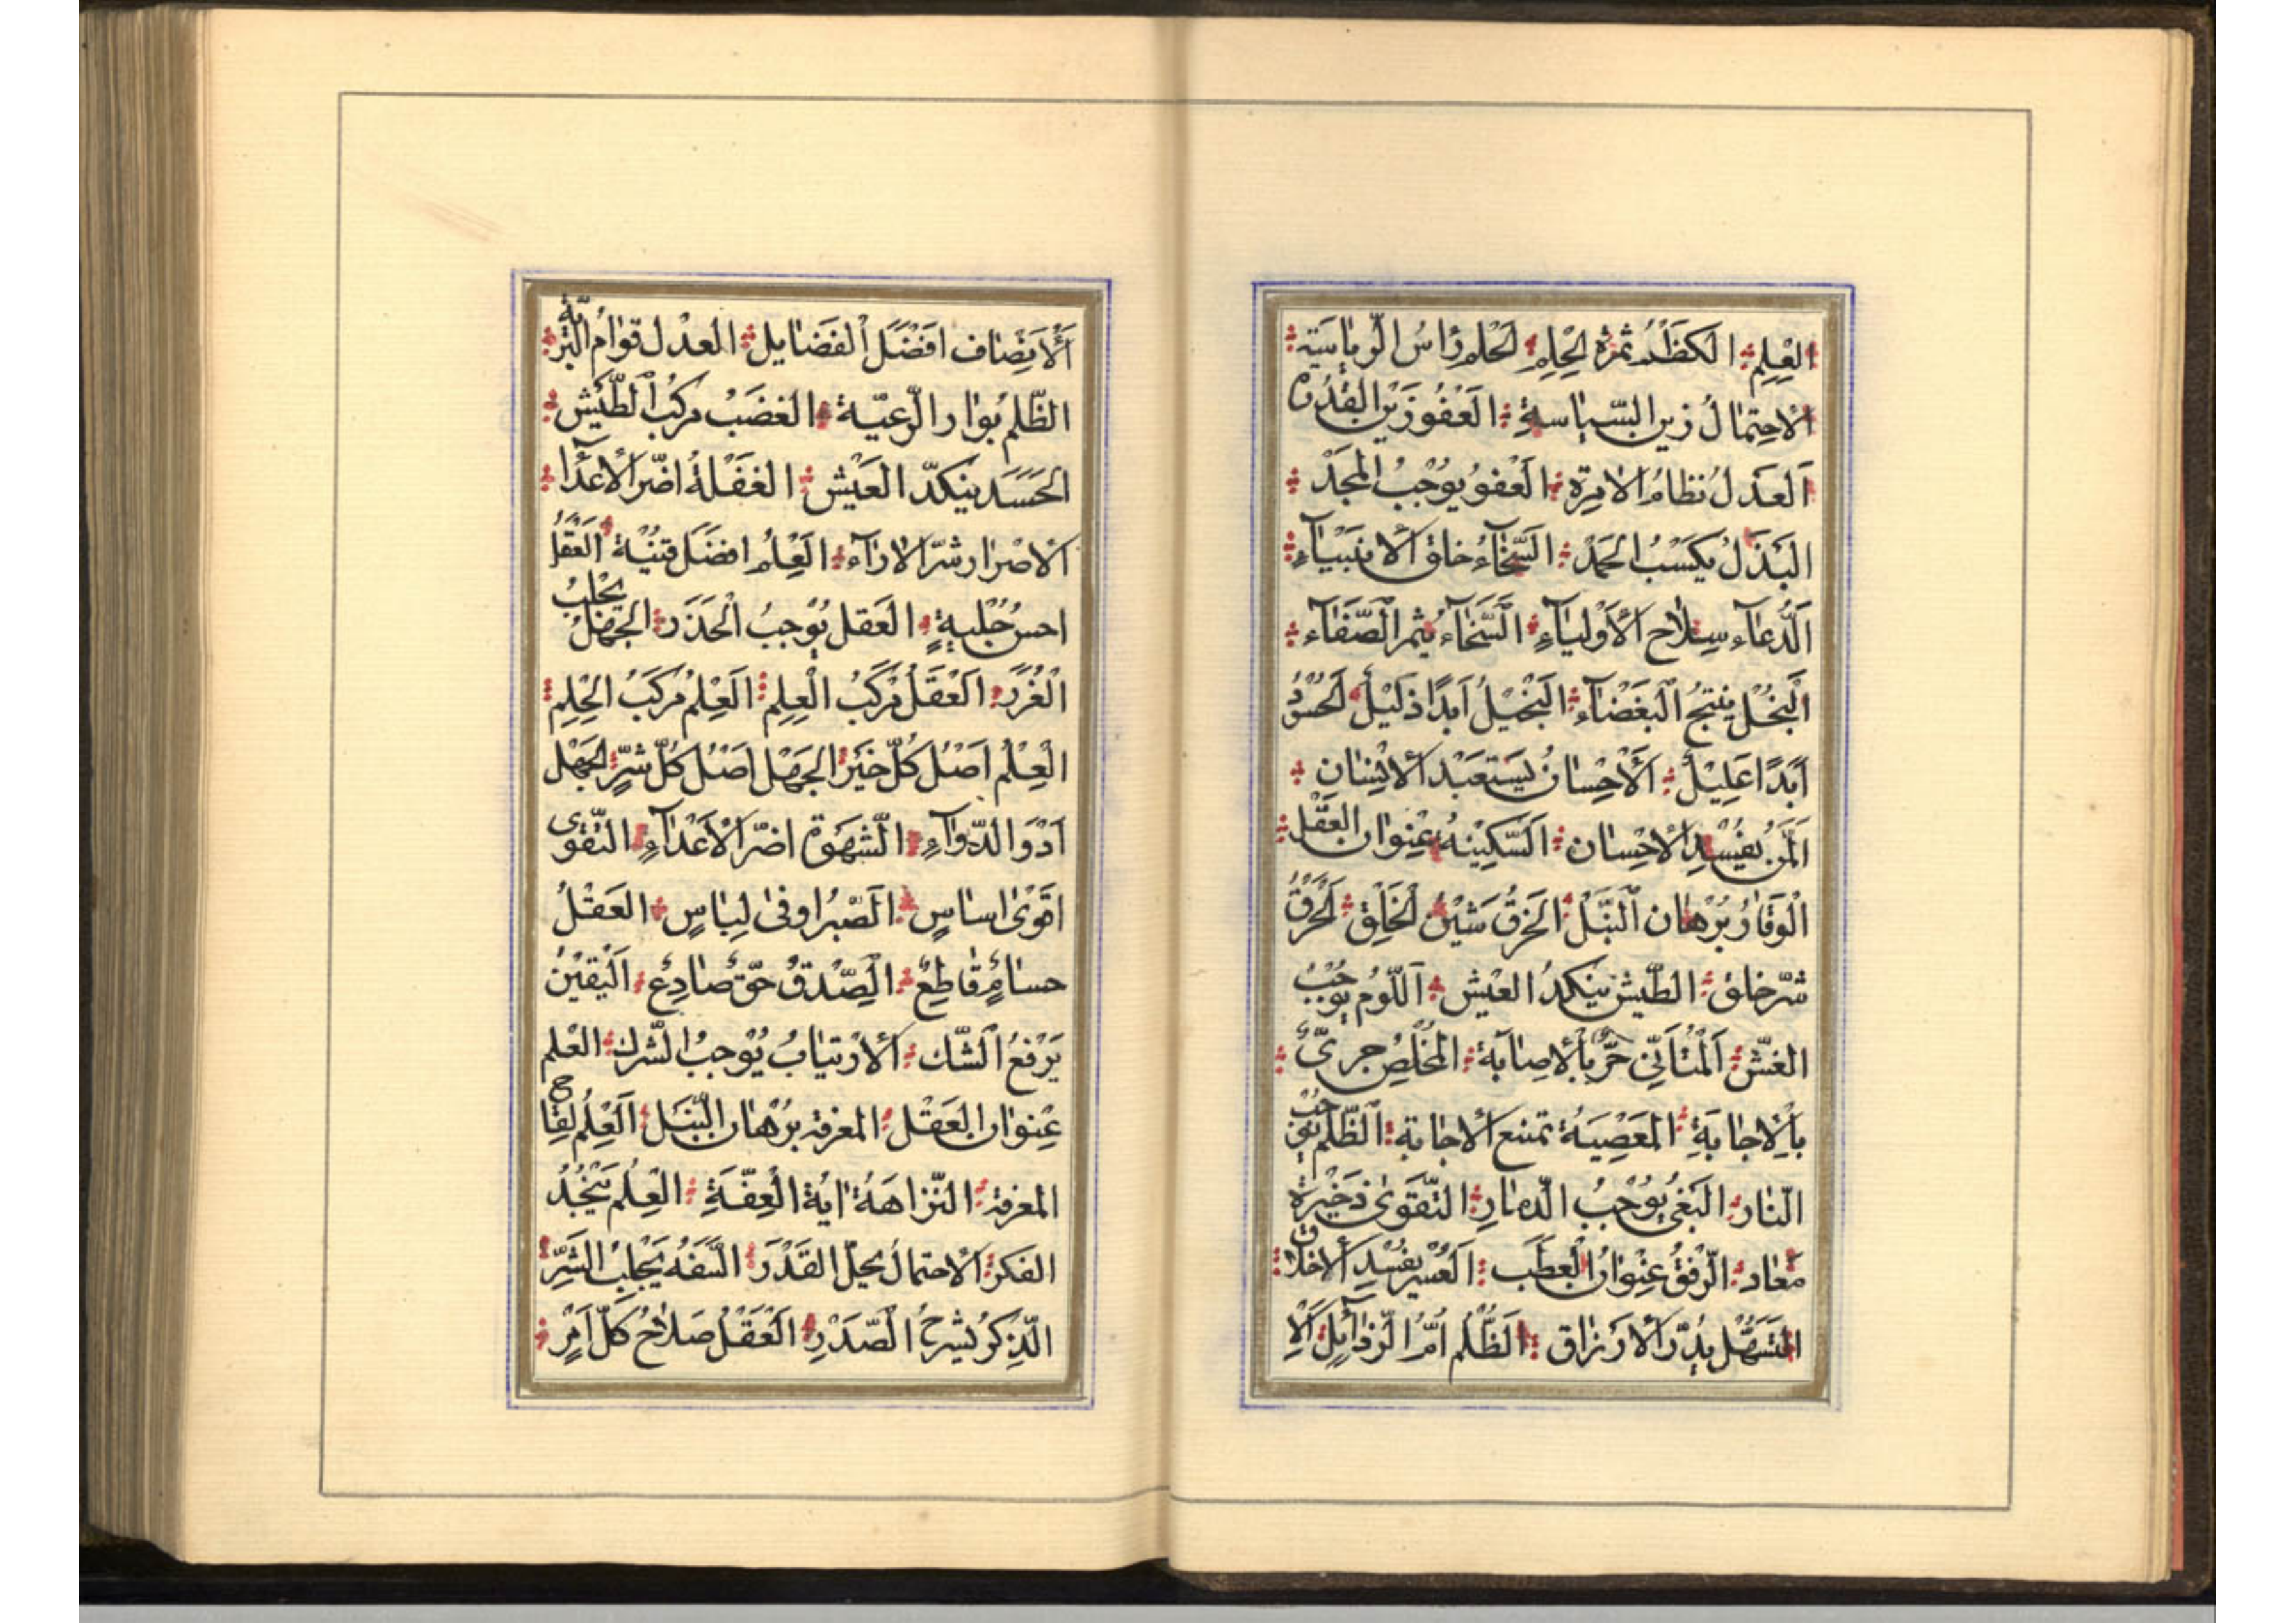 العِلِم الكَظْمُ ثمَرَةُ الحِلِمِ الحْلم رَاسُ الرِّيٰاسَتِة
الاحِتمٰالُ زين السّيٰاسةِ العَفُو زَيْن القُدْرَة
اَلعَدلُ نظامُ الامِرة العْفوُ يوُجْبُ المجَدْ
البَذلُ يكَسْبُ الحَمدْ السَّخٰآءُ خلق الأنبيٰآءِ
الَدُّعآء سِلاٰح الأوْليٰآءِ السَّخٰآء يثمر الصَّفآء
البُخْل ينتجُ البَغضْآء البَخيْلُ اَبدًا ذَليْلٌ الحَسُوْدُ
اَبَدًا عَلِيْلٌ الأحِسانُ يستعَبْد الأنِسٰان
المَنّ يفُسِْد الأحِسٰان السَّكيْنهُ عِنوان العَقْل
الوَقٰارُ بُرْهٰان النُّبْل الخرقُ شَيْنُ الخلِق الخرْقُ
شرّ خلق الطَّيش ينكدُ العيْش اللّوم يوُجْبُ
الغشّ المُتَأنّي حَرٌّ بالأصٰابَة المخُلصُ حرىٌّ
بالإجٰابَةِ المعَصْيَةُ تمنع الأجٰابة الظّلم يوجبُ
النّار البَغْي يوُجْبُ الدّمٰارِ التّقوىٰ ذخَيْرة
مَعٰاد الرّفقُ عِنوانُ العطَب العُسْر يفُسْد الأخلاٰق
التَسَهُّل يُدِرّ الأرْزٰاق الظّلُم اُمُّ الرّذآئِل اَلاِ
اَلأنِصٰاف افَضَل الفَضٰايل العدْل قوٰامُ البَرّيةِ
الظّلم بُوٰار الرّعيّة الغضَبُ مركبُ الطَّيْش
الحَسَد ينكدّ العَيْش الغفْلةُ اضّر الأعدٰٓا
الأصْرٰار شرّ الارٰآء العِلمُ افضَل قنيْة العَقْلُ
احسنُ حُلْيةٍ العَقل يُوجبُ الحَذَر الجهَلُ يجْلبُ
الغُرَرْ العَقلُ مرْكَبُ العِلِم العِلمُ مركَبُ الحِلِم
العِلْم اَصْلُ كُلّ خَيْر الجهَل اَصْل كُلّ شرّ الجهَل
اَدْوَا الدّوٰآءِ الشّهَوَة اضّر الأعَدْآءِ التّقوى
اقَوْىٰ اسٰاسٍ الصّبْرُ اوفىٰ لِباسٍ العَقْلُ
حسٰامٌ قٰاطِعٌ الصِّدْقُ حَقٌّ صٰادِعٌ اليَقيْنُ
يَرْفعُ الشّك الأرتيٰابُ يُوْجبُ الشّرك العْلم
عِنوان العَقْل المعرفة بُرْهٰان النّبَل العِلمُ لِقٰاح
المعرفة النّزاهَةُ اٰيةُ العِفّةَِ العِلم يُنجْدُ
الفكر الأحتمٰالُ يجلّ القَدْرَ السَّفَهُ يَجْلِبُ الشَّرِّ
الذِّكرُ يشرحُ الصّدْرِ العَقْلُ صَلاٰحُ كلّ اَمْرٍ